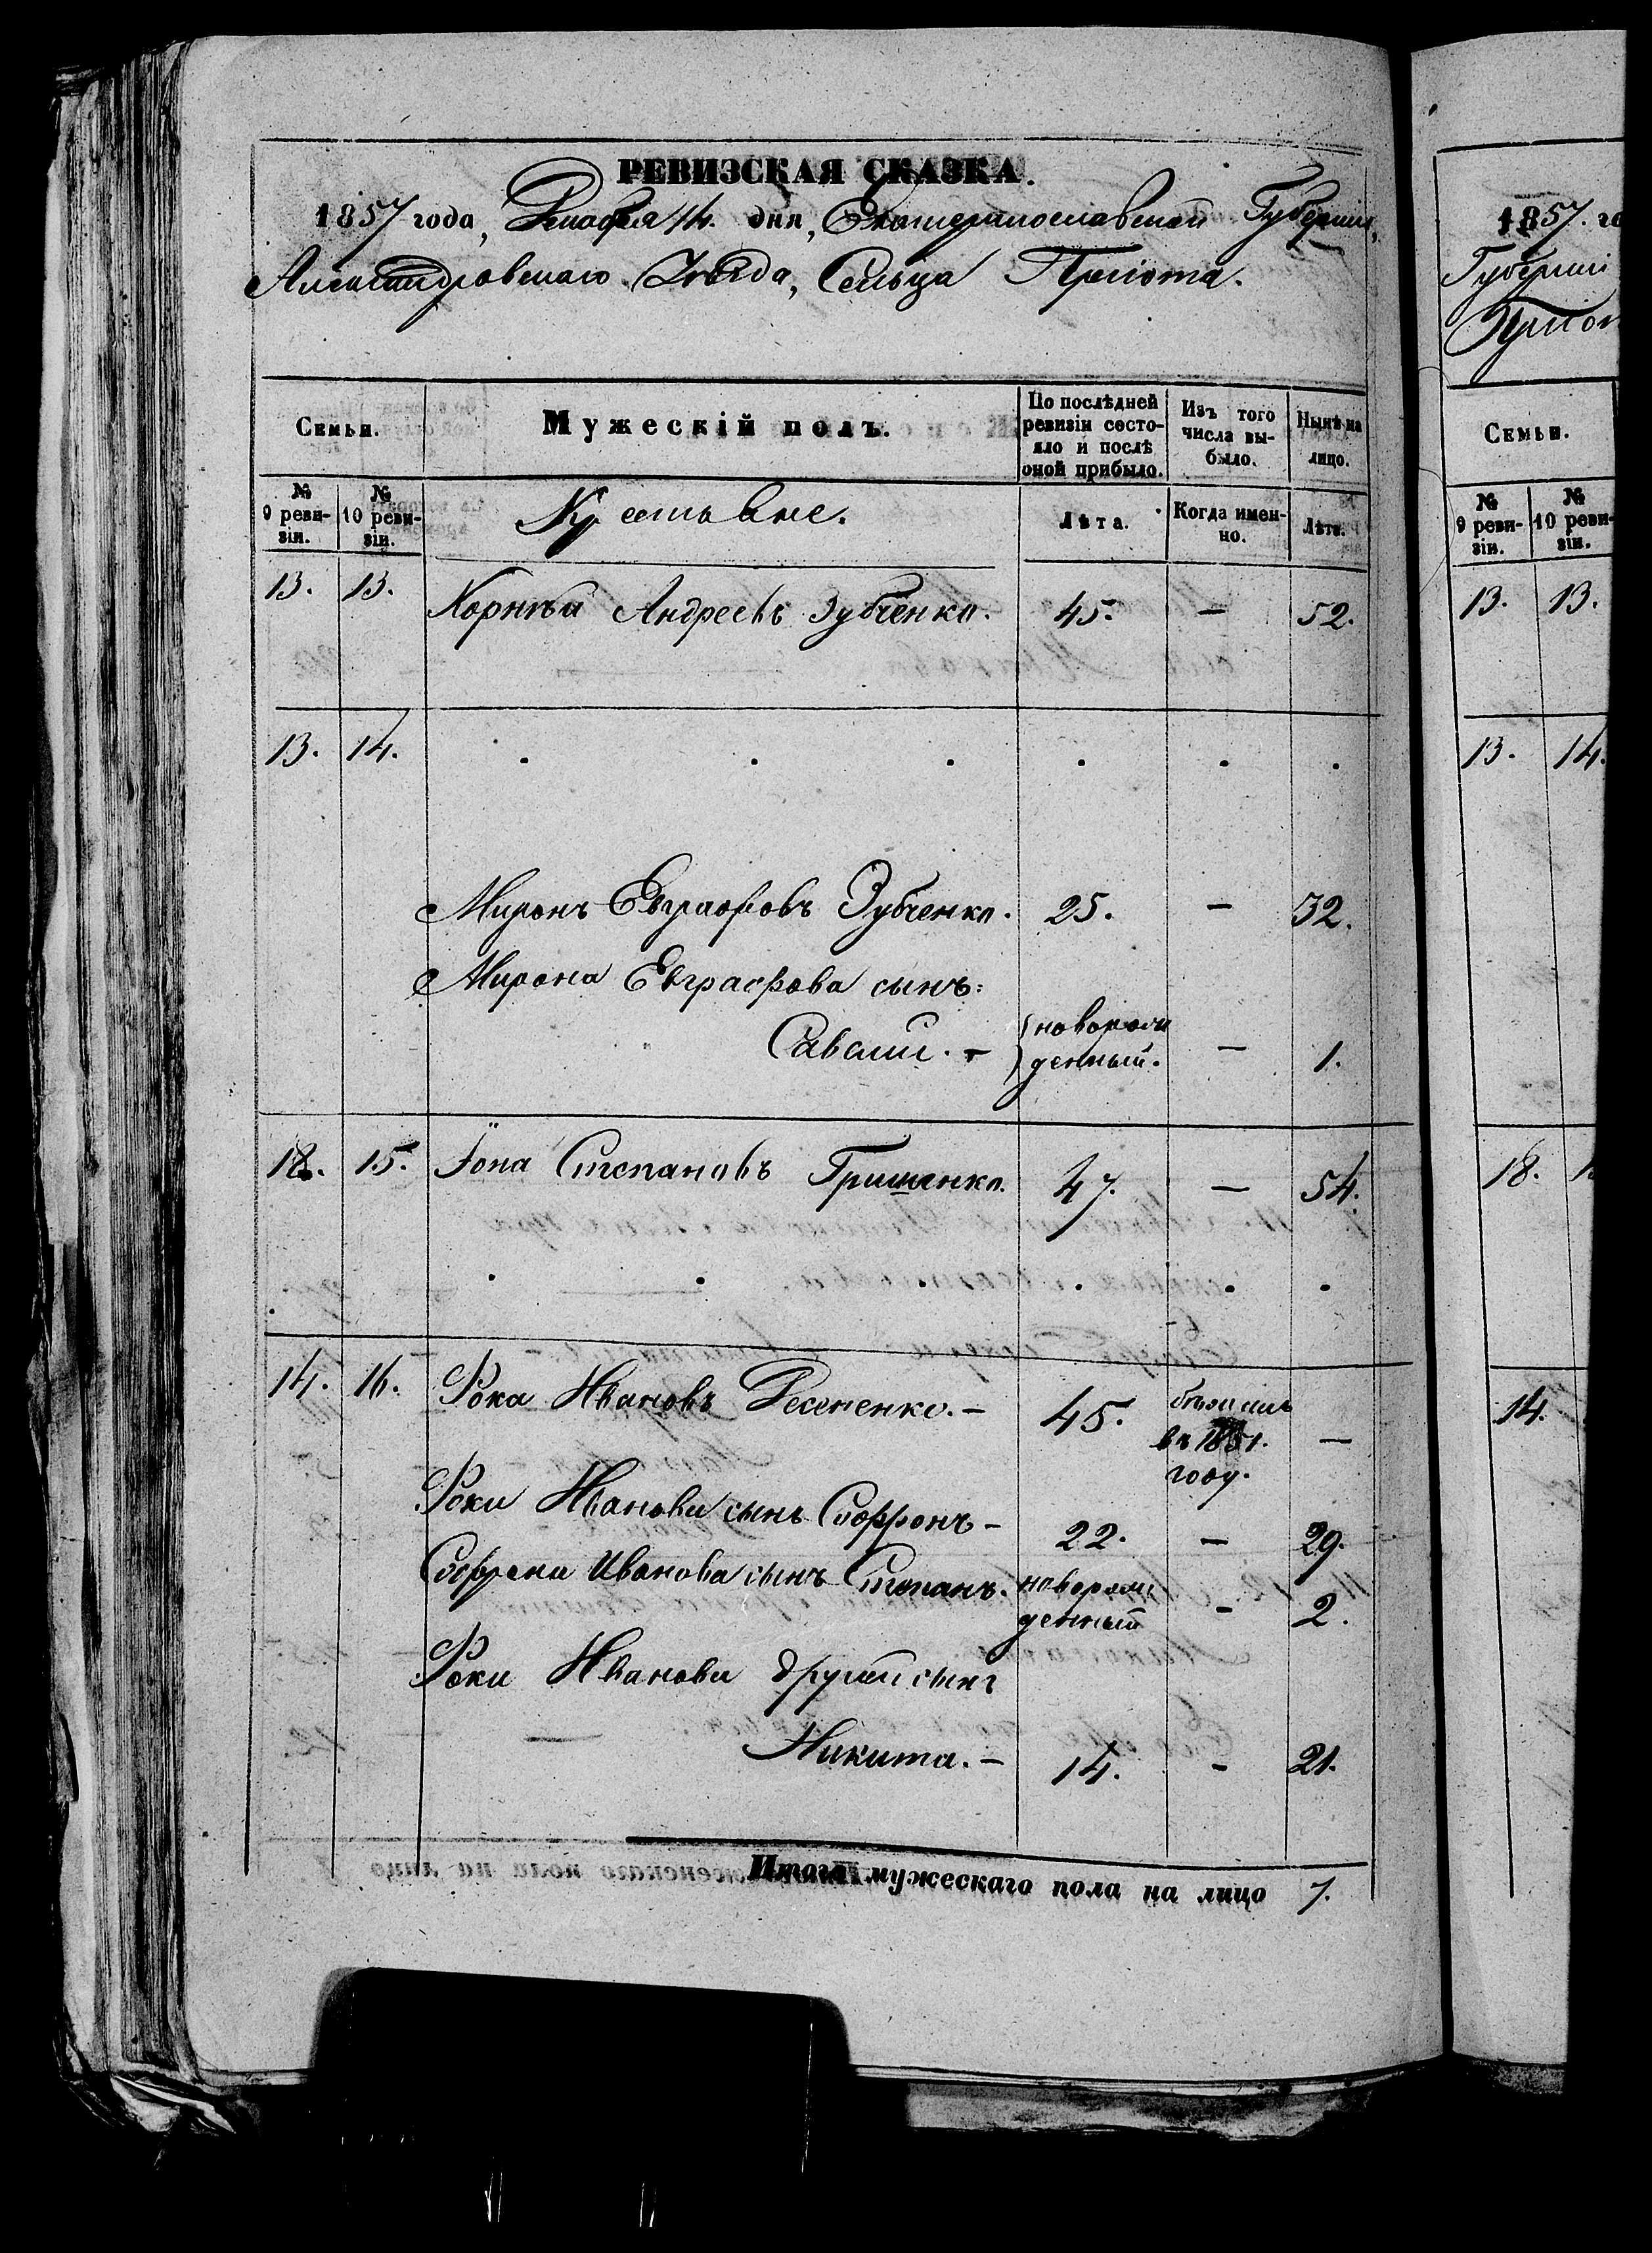 РЕВИЗСКАЯ СКАЗКА.
1857 года, Декабря 14. дня, Екатеринославской Губерніи,
Александровскаго Уѣзда, Сельца Пріюта.
Семьи.
Мужескій полъ.
По послѣдней ревизіи состояло и послѣ оной прибыло.
Изъ того числа выбыло.
Нынѣ на лицо.
№ 9 ревизіи.
№ 10 ревизіи.
Крестьяне.
Лѣта.
Когда именно.
Лѣта.
13. 13. Корнѣй Андреевъ Зубченко. 45. — 52.
13. 14. . . . . . .
Миронъ Евграфовъ Зубченко. 25. — 32.
Мирона Евграфова сынъ:
Савелій. — новорожденный. — 1.
18. 15. Іона Степановъ Гришенко. 47. — 54.
. . . . . .
14. 16. Фока Ивановъ 45. въ 1851. году. —
Фоки Иванова сынъ Софронъ — 22. — 29.
Софрона Иванова сынъ Степанъ. новорожденный — 2.
Фоки Иванова другой сынъ
Никита. — 14. — 21.
Итого мужескаго пола на лицо 7.
1857. го
Губерніи
Семьи.
№ 9 ревизіи.
№ 10 ревизіи.
13. 13.
13. 14.
18.
14.